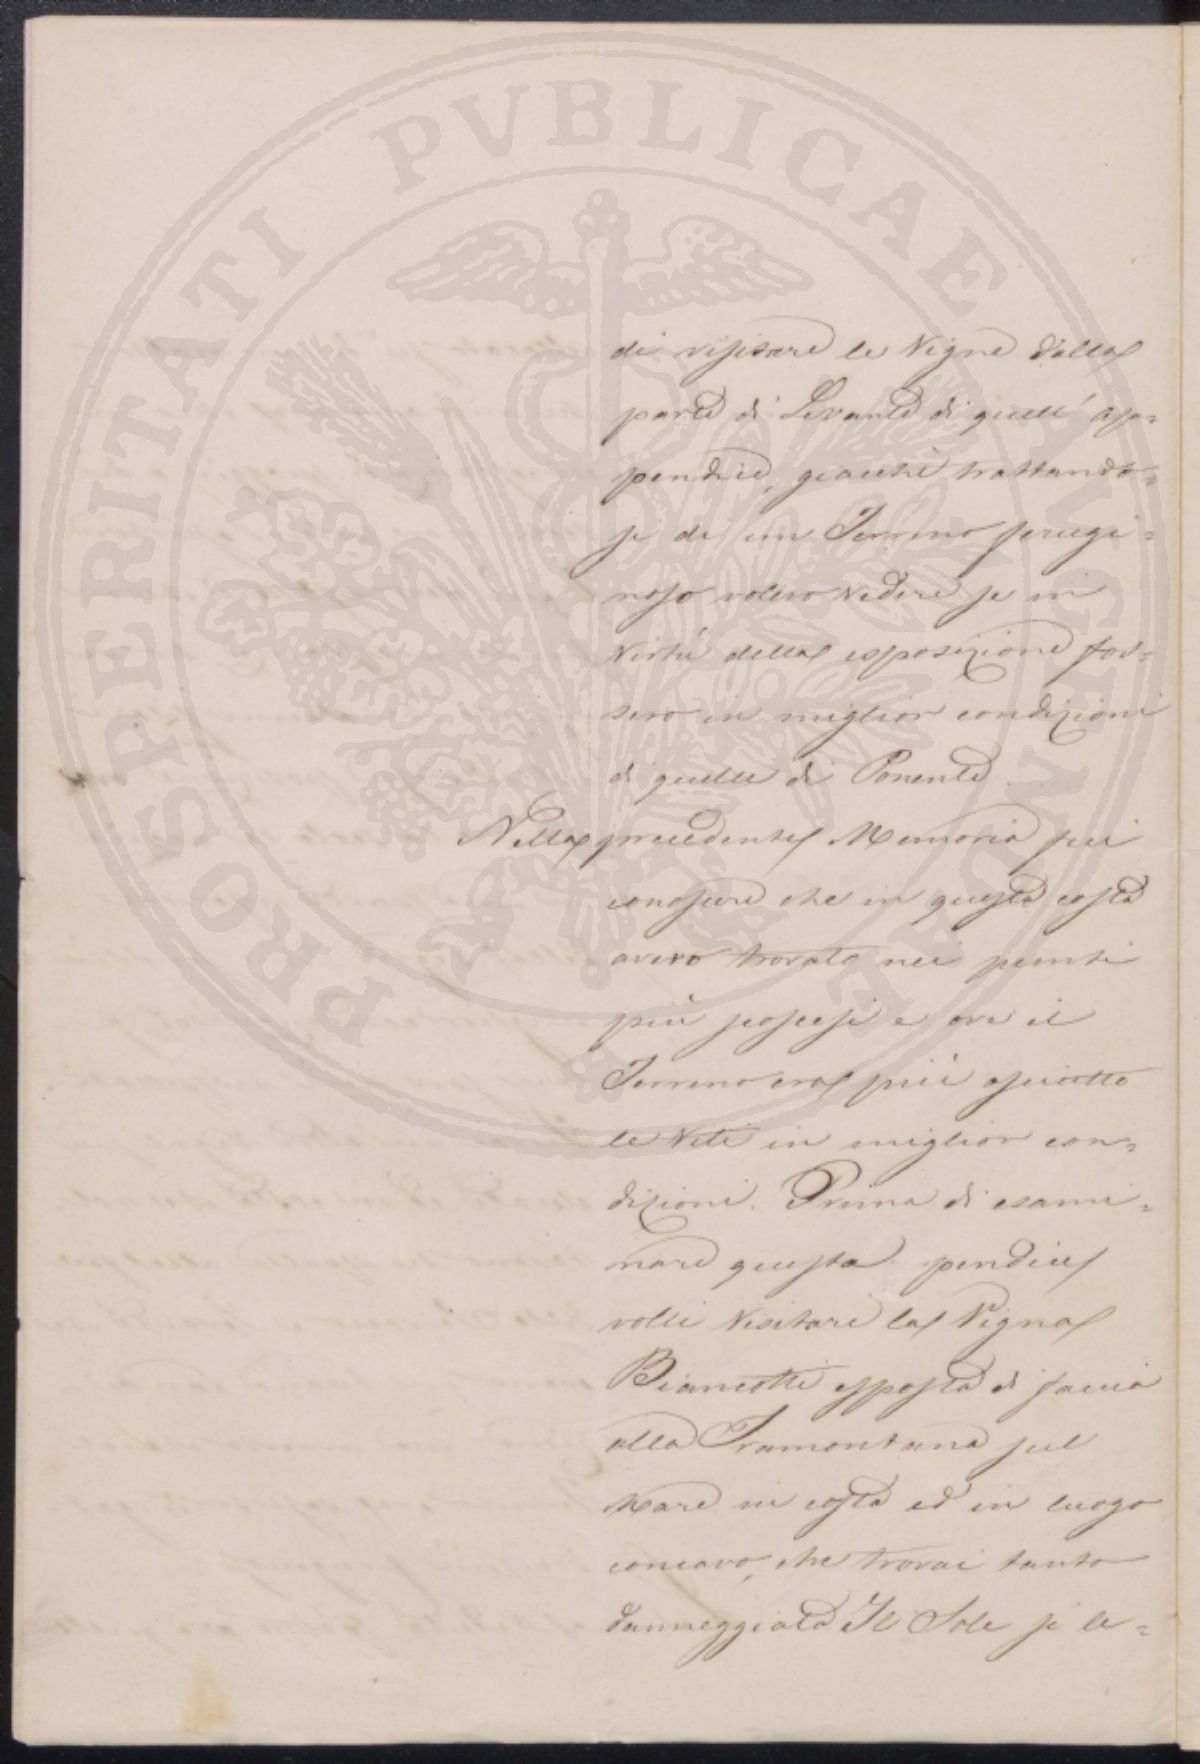 PROSPERITATI PVBLICAE AVGENDAE
di visitare le Vigne dalla
parte di Levante di quell'ap=
pendice, giacchè trattando=
si di un Terreno ferugi=
noso volevo vedere se in
virtù della esposizione fos=
sero in miglior condizioni
di quelle di Ponente
Nella precedente Memoria feci
conoscere che in questa costa
avevo trovato nei punti
più scoscesi e ove il
Terreno era più asciutto
le Viti in miglior con=
dizioni. Prima di esami=
nare questa pendice
volli Visitare la Vigna
Biancotti esposta di faccia
alla Tramontana sul
Mare in costa ed in luogo
concavo, che trovai tanto
danneggiata Il Sole si le=